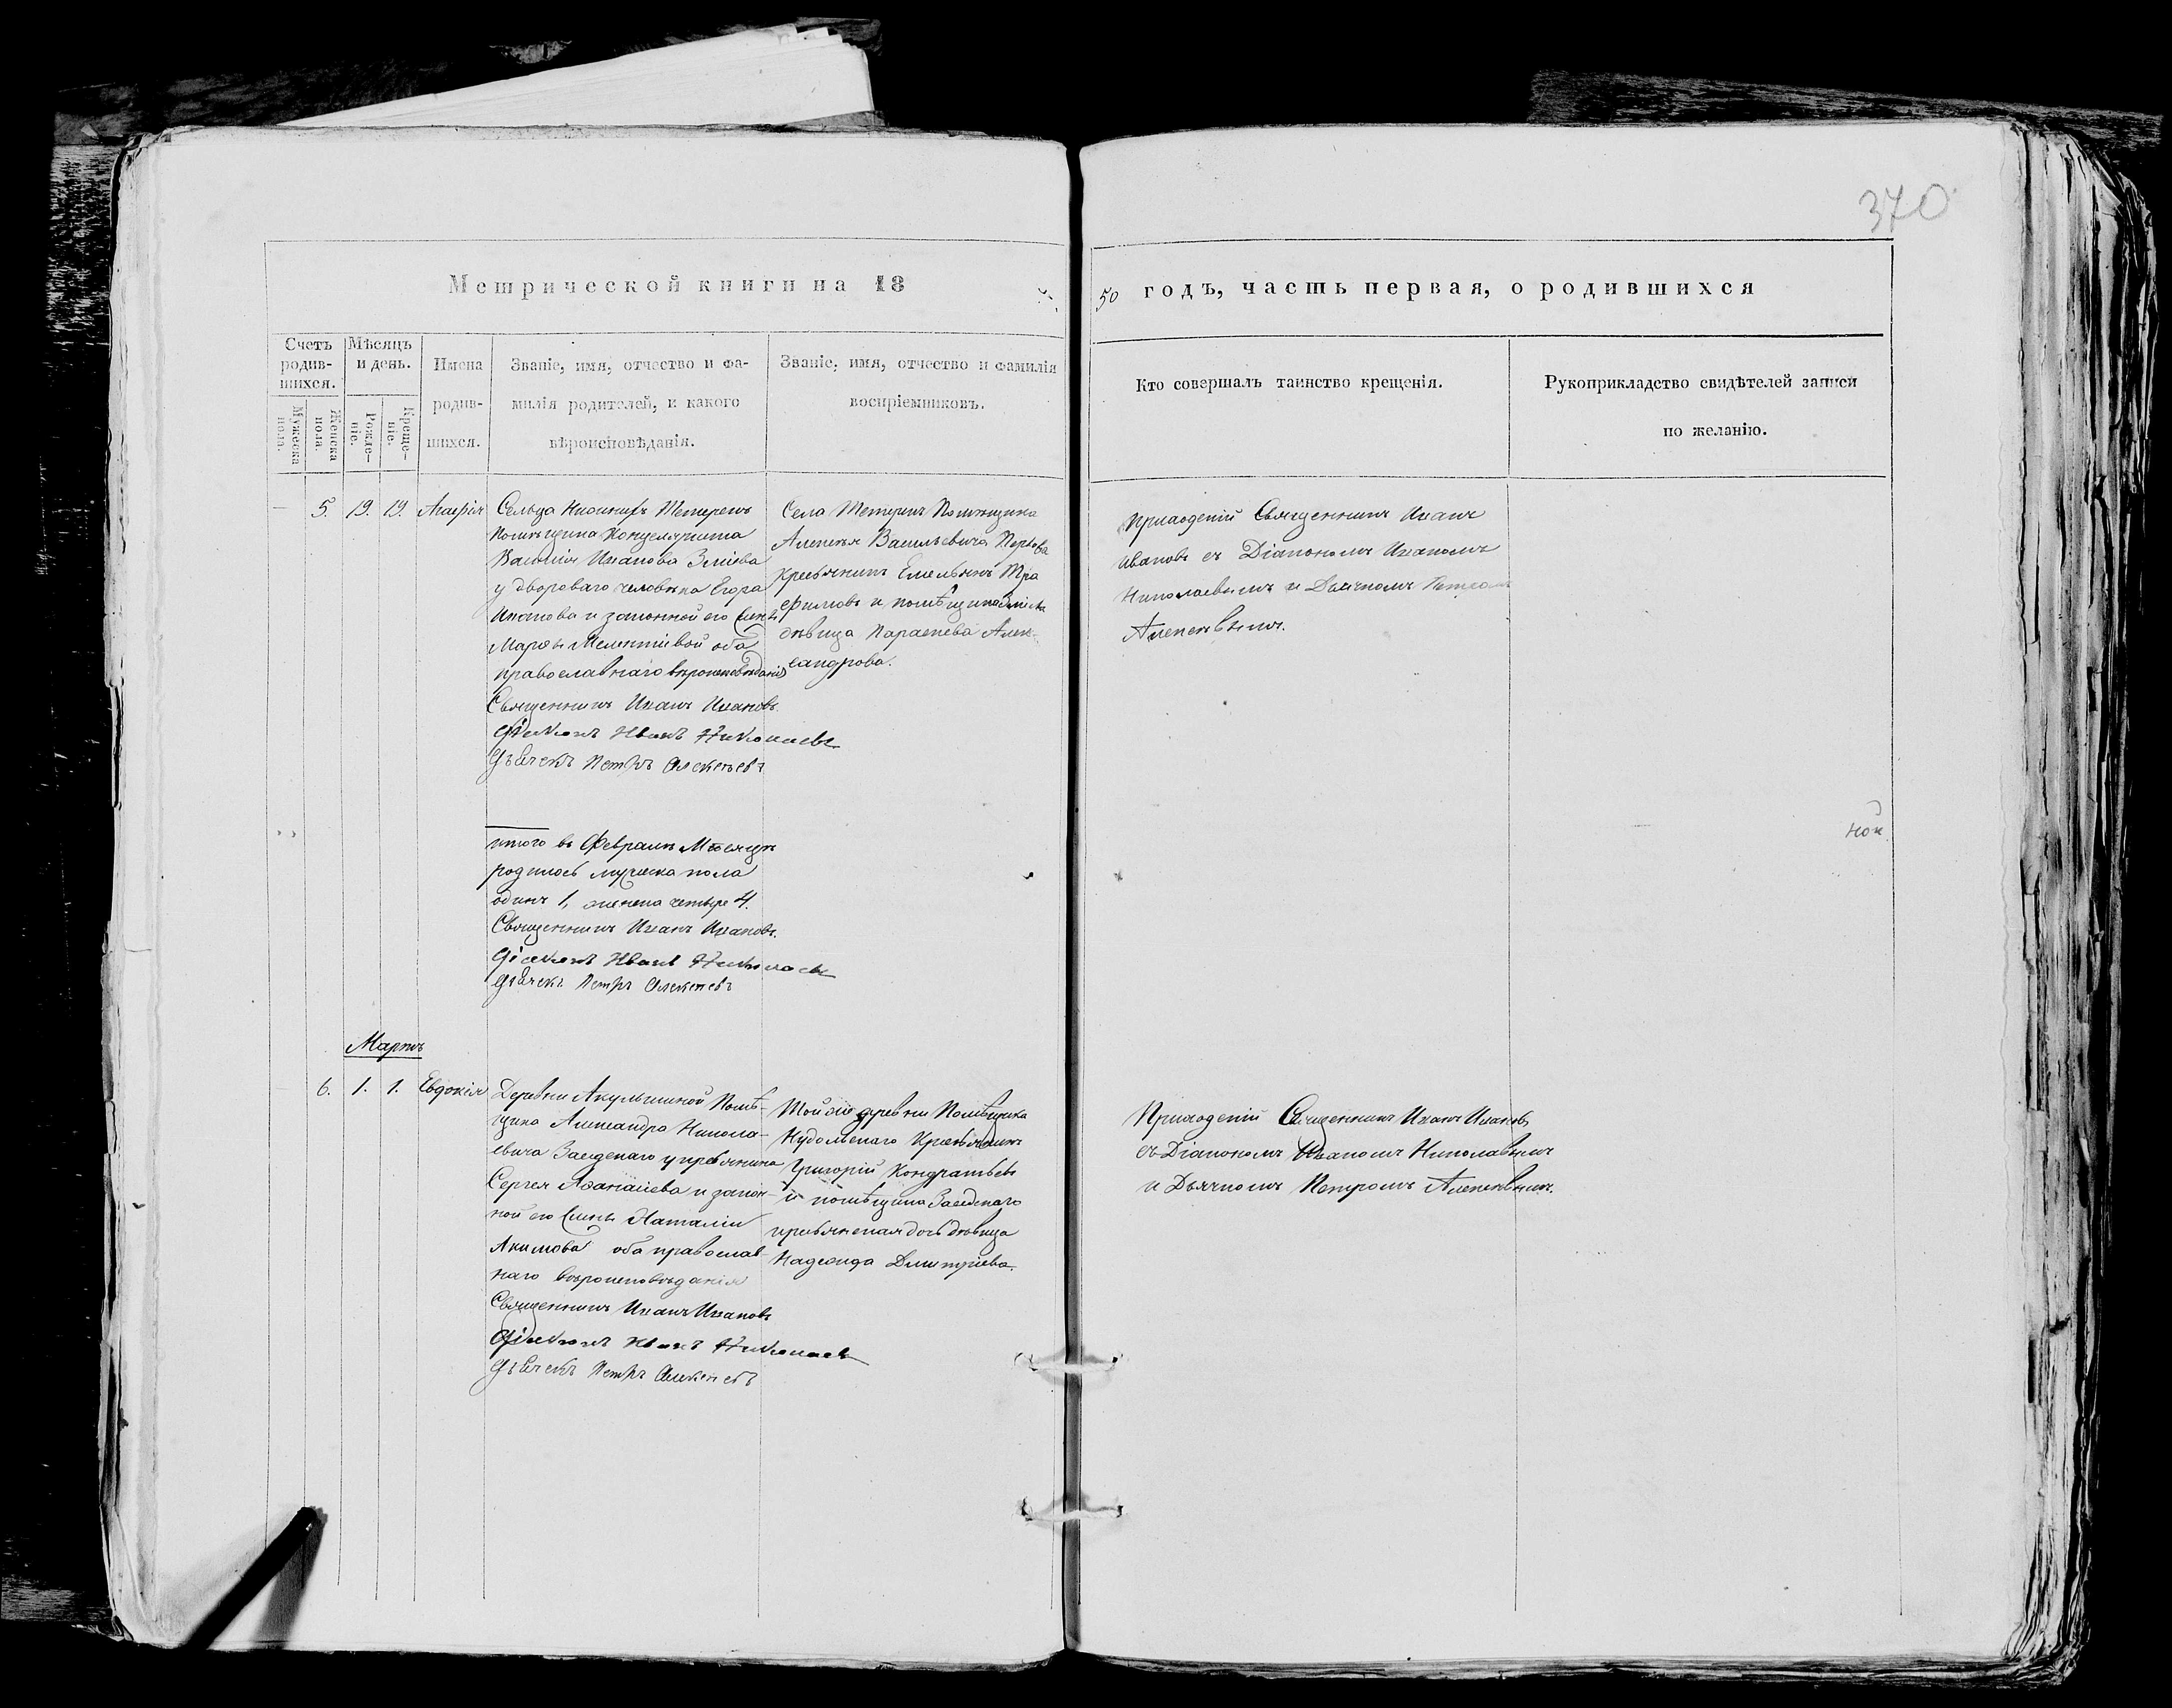 370
Метрической книги на 18
50 годъ, часть первая, о родившихся
Счетъ родившихся.
Мужеска пола.
Женска пола.
Мѣсяцъ и день.
Рожденіе.
Крещеніе.
Имена
родив-
шихся.
Званіе, имя, отчество и фа-
милія родителей, и какого
вѣроисповѣданія.
Званіе, имя, отчество и фамилія
воспріемниковъ.
Кто совершалъ таинство крещенія.
Рукоприкладство свидѣтелей записи
по желанію.
5. 19. 19. Агафія
Сельца
Помѣщика Канцеляриста
Василія Иванова Зміева
у двороваго человѣка Егора
Иванова и законной его жены
Марѳы Мелентіевой оба
православнаго вѣроисповѣданія
Священникъ Иванъ Ивановъ.
Діаконъ Иванъ Николаевъ
Дьячекъ Петръ Алексѣевъ
Села Помѣщика
Алексѣя Васильевича
крестьянинъ Емельянъ Тро
фимовъ и помѣщика Зміева
дѣвица Параскева Алек-
сандрова.
Приходскій Священникъ Иванъ
Ивановъ съ Діакономъ Иваномъ
Николаевымъ и Дьячкомъ Петромъ
Алексѣевымъ.
итого въ Февралѣ Мѣсяцѣ
родилось мужеска пола
одинъ 1, женска четыре 4.
Священникъ Иванъ Ивановъ.
Діаконъ Иванъ Николаевъ
Дьячекъ Петръ Алексѣевъ
Мартъ
6. 1. 1. Евдокія
Деревни Акулининой Помѣ-
щика Александра Никола-
евича Заседскаго у крестьянина
Сергея Аѳанасіева и закон-
ной его жены Наталіи
Якимова оба православ-
наго вѣроисповѣданія
Священникъ Иванъ Ивановъ
Діаконъ Иванъ Николаевъ
Дьячекъ Петръ Алексѣевъ
Той же деревни Помѣщика
Крестьянинъ
Григорій Кондратьевъ
и помѣщика Заседскаго
крестьянская дочь дѣвица
Надежда Дмитріева.
Приходскій Священникъ Иванъ Ивановъ
съ Діакономъ Иваномъ Николаевымъ
и Дьячкомъ Петромъ Алексѣевымъ.